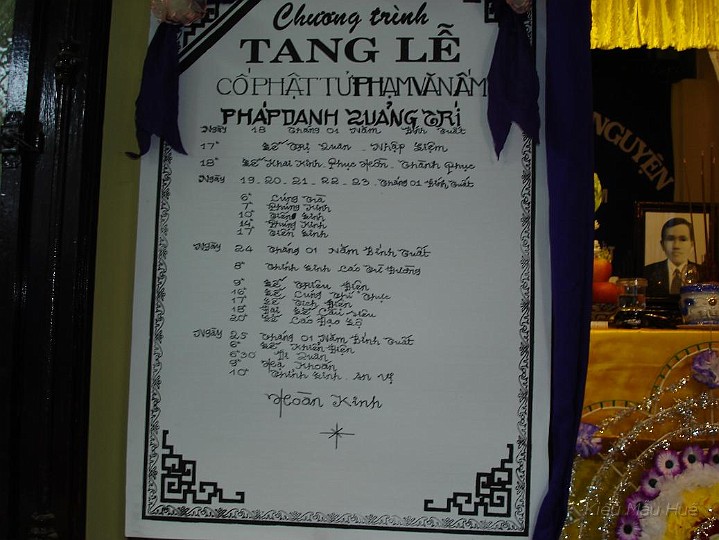 Chương trình
TANG LỄ
CỐ PHẬT TỬ PHẠM VĂN ẤM
PHÁP DANH QUẢNG TRÍ
Ngày 18 Tháng 01 Năm Bính Tuất
17° Lễ Trị Quan - Nhập Liệm
18° Lễ Khai Kinh Phục Hồn - Thành Phục
Ngày 19_20_21_22_23 Tháng 01 Bính Tuất
6° Cúng Trà
7° Phúng Kinh
10° Tiến Linh
14° Phúng Kinh
17° Tiến Linh
Ngày 24 Tháng 01 Năm Bính Tuất
8° Thỉnh Linh Cáo Từ Đường
9° Lễ Triêu Điện
16° Lễ Cúng Thí Thực
17° Lễ Tịch Điện
18° Đại Lễ Cầu Siêu
20° Lễ Cáo Đạo Lộ
Ngày 25 Tháng 01 Năm Bính Tuất
6° Lễ Khiển Điện
6°30 Di Quan
9° Hạ Khoán
10° Thỉnh Linh - An Vị
Hoàn Kinh
NGUYỆN
Kiều Mậu Huế